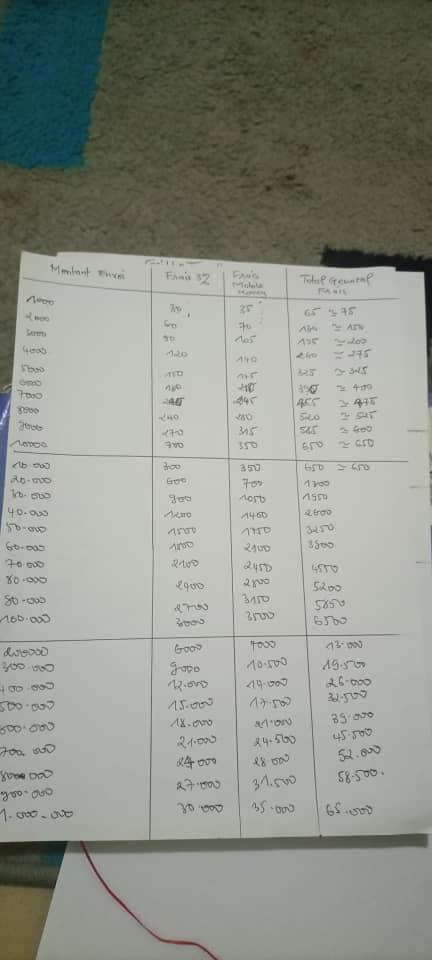 Montant Envoi | Frais 3% | Frais Mobile Money | Total General Frais
1000 | 30 | 35 | 65 ≃ 75
2000 | 60 | 70 | 130 ≃ 150
3000 | 90 | 105 | 195 ≃ 200
4000 | 120 | 140 | 260 ≃ 275
5000 | 150 | 175 | 325 ≃ 325
6000 | 180 | 210 | 390 ≃ 400
7000 | 245 | 455 ≃ 475
8000 | 240 | 280 | 520 ≃ 525
9000 | 270 | 315 | 585 ≃ 600
10000 | 300 | 350 | 650 ≃ 650
10.000 | 300 | 350 | 650 ≃ 650
20.000 | 600 | 700 | 1300
30.000 | 900 | 1050 | 1950
40.000 | 1200 | 1400 | 2600
50.000 | 1500 | 1750 | 3250
60.000 | 1800 | 2100 | 3900
70.000 | 2100 | 2450 | 4550
80.000 | 2400 | 2800 | 5200
90.000 | 2700 | 3150 | 5850
100.000 | 3000 | 3500 | 6500
200000 | 6000 | 7000 | 13.000
300.000 | 9000 | 10.500 | 19.500
400.000 | 12.000 | 14.000 | 26.000
500.000 | 15.000 | 17.500 | 32.500
600.000 | 18.000 | 21.000 | 39.000
700.000 | 21.000 | 24.500 | 45.500
800000 | 24.000 | 28.000 | 52.000
900.000 | 27.000 | 31.500 | 58.500.
1.000.000 | 30.000 | 35.000 | 65.000